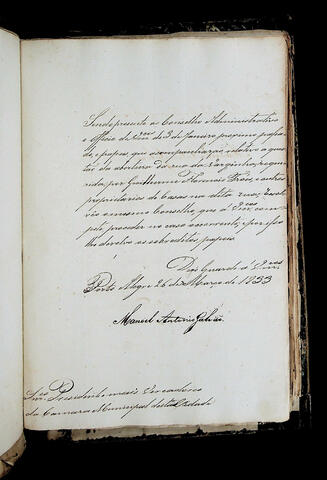 Sendo presente a Conselho Administractivo
o Officio de Vmces de 3 de Janeiro proximo passa-
do, e papeis que acompanharão, relativo a ques-
tão da abertura da rua da Varginha, reque-
rida, por Guilherme Florencio Froes, e outros
proprietarios de Casas na dita rua; resol-
veo o mesmo Conselho, que á Vmces com-
pete proceder no caso occorrente; e por isso
lhe devolvo os sobreditos papeis.
Deos Guarde a Vmces
Porto Alegre 26 de Março de 1833
Manoel Antonio Galvão
Snres Presidente e mais Vereadores
da Camara Municipal desta Cidade